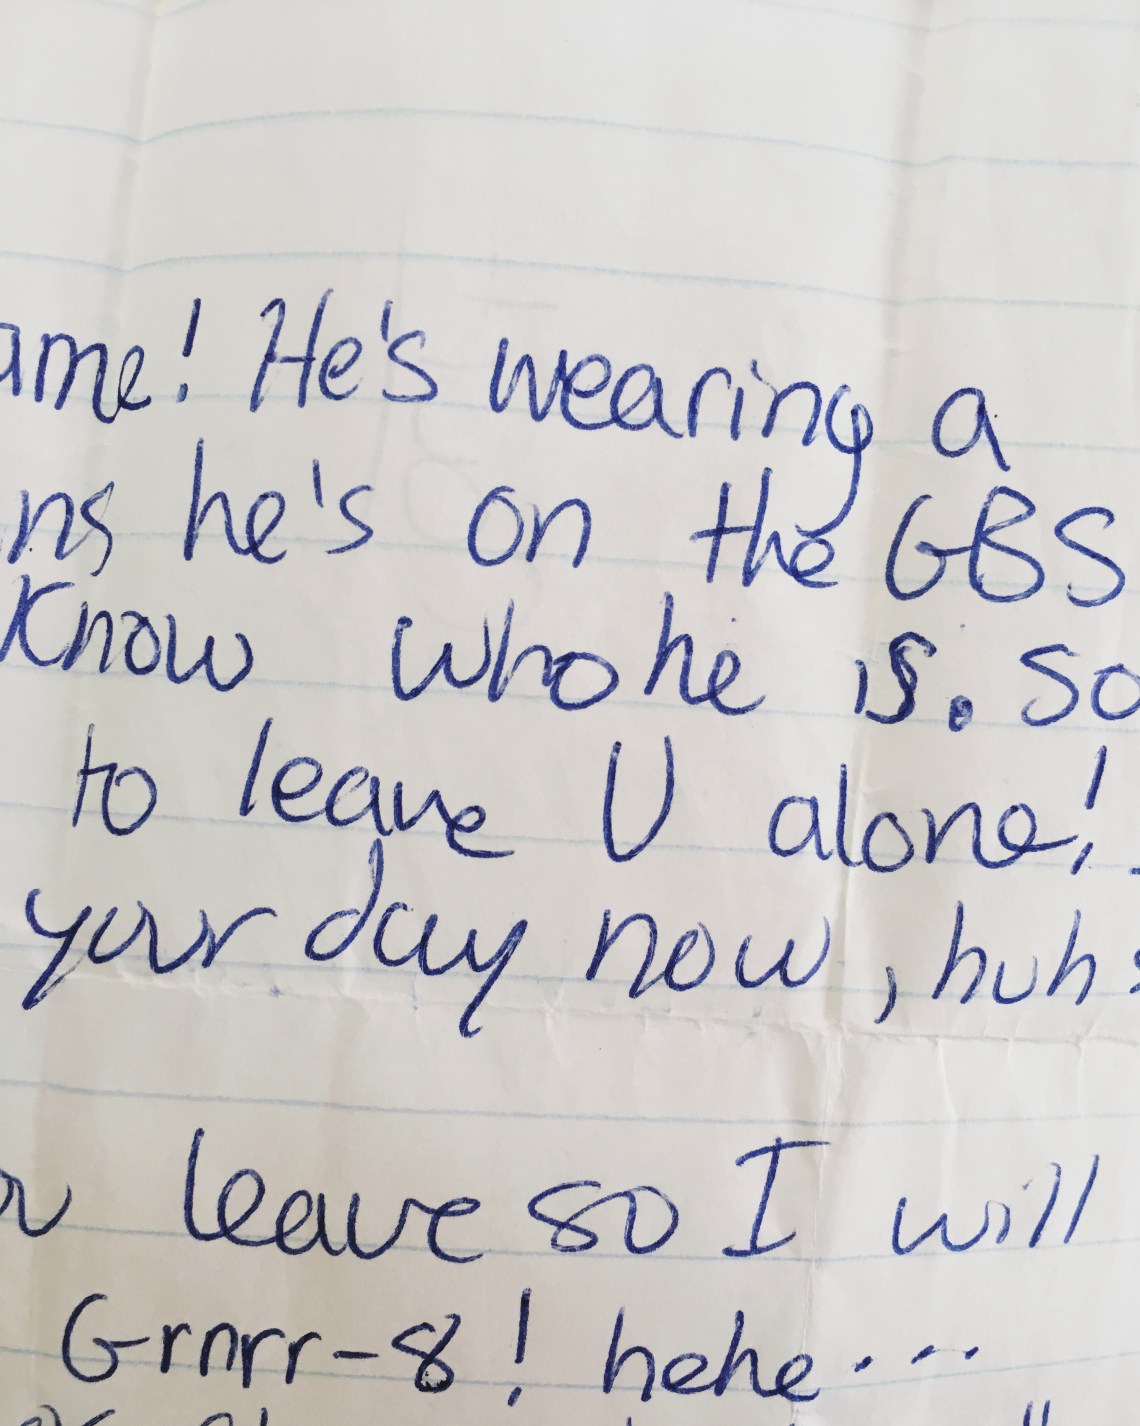 ame! He's wearing a
ns he's on the GBS
Know who he is. So
to leave U alone!
your day now, huh
leave so I will
Grnrr-8! hehe...